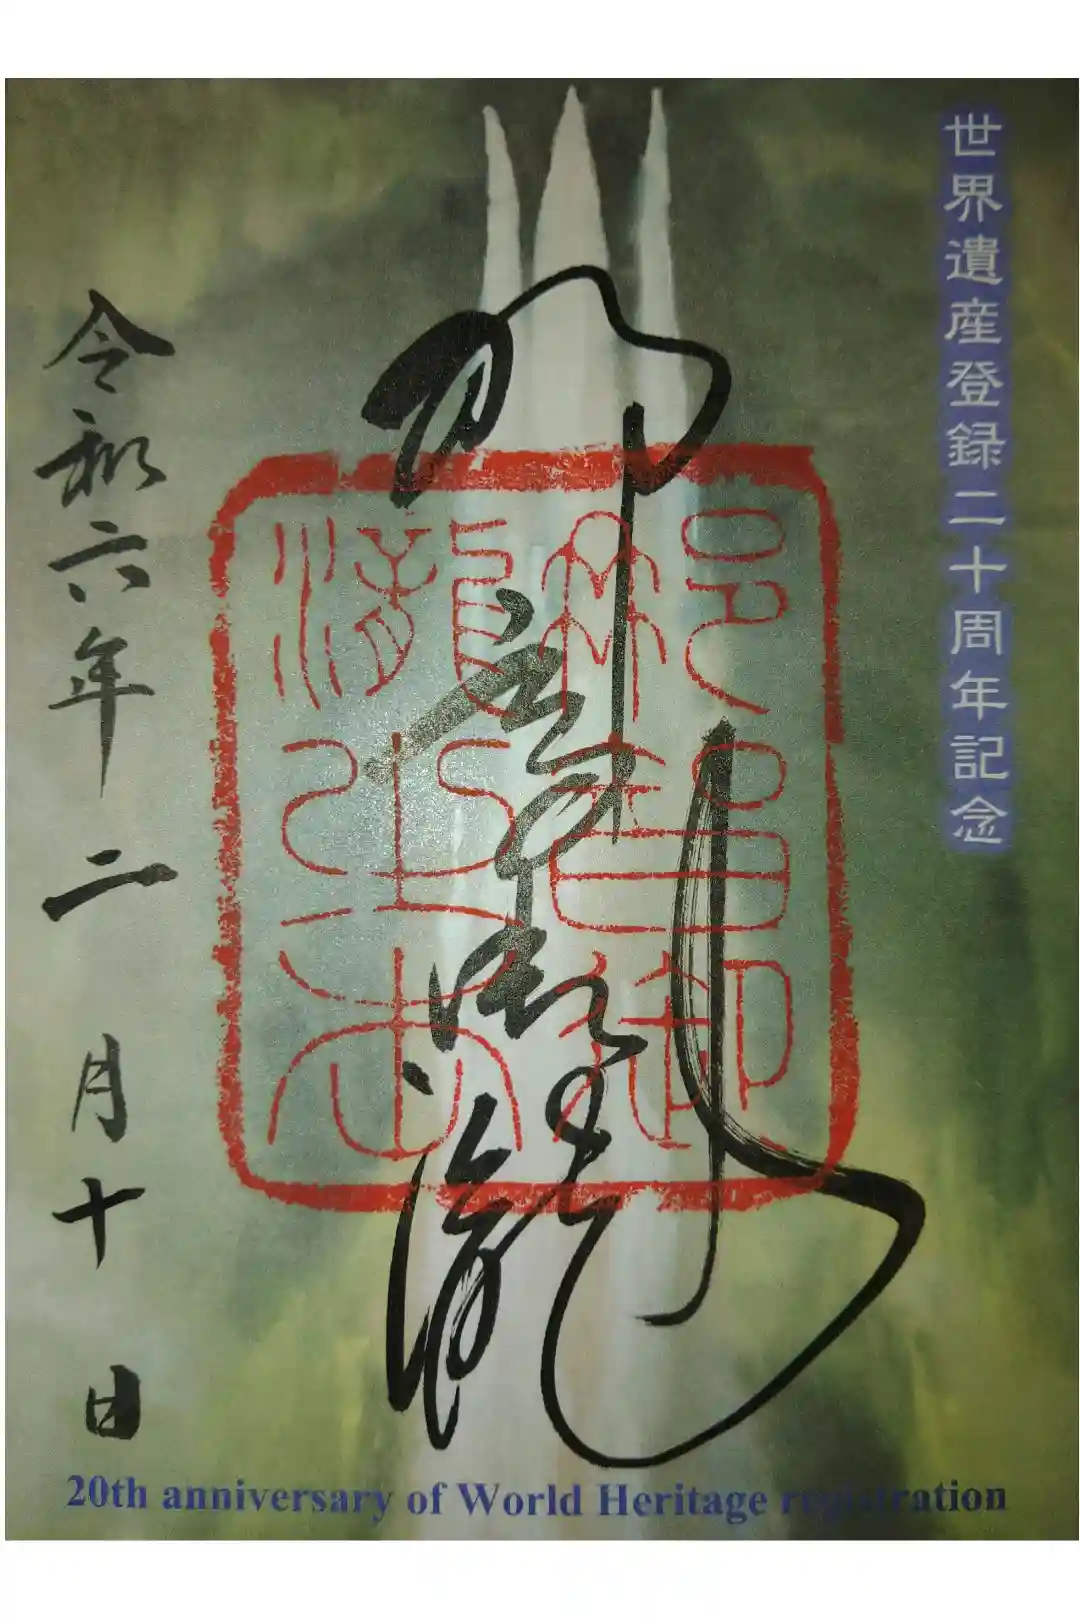 世界遺産登録二十周年記念
那智御瀧
令和六年二月十日
20th anniversary of World Heritage registration